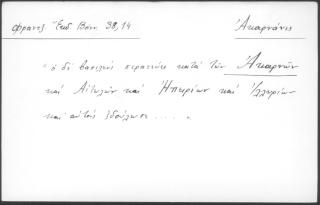 Φραντζ. Ἔκδ Βόν. 38,14 Ἀκαρνάνες
" ὁ δὲ βασιλεὺς στρατεύει κατὰ τῶν Ἀκαρνῶν
καὶ Αἰτωλῶν καὶ Ἠπειρίων καὶ Ἰλλυρίων
καὶ αὐτοὺς ἐδούλωσε . . . . . "